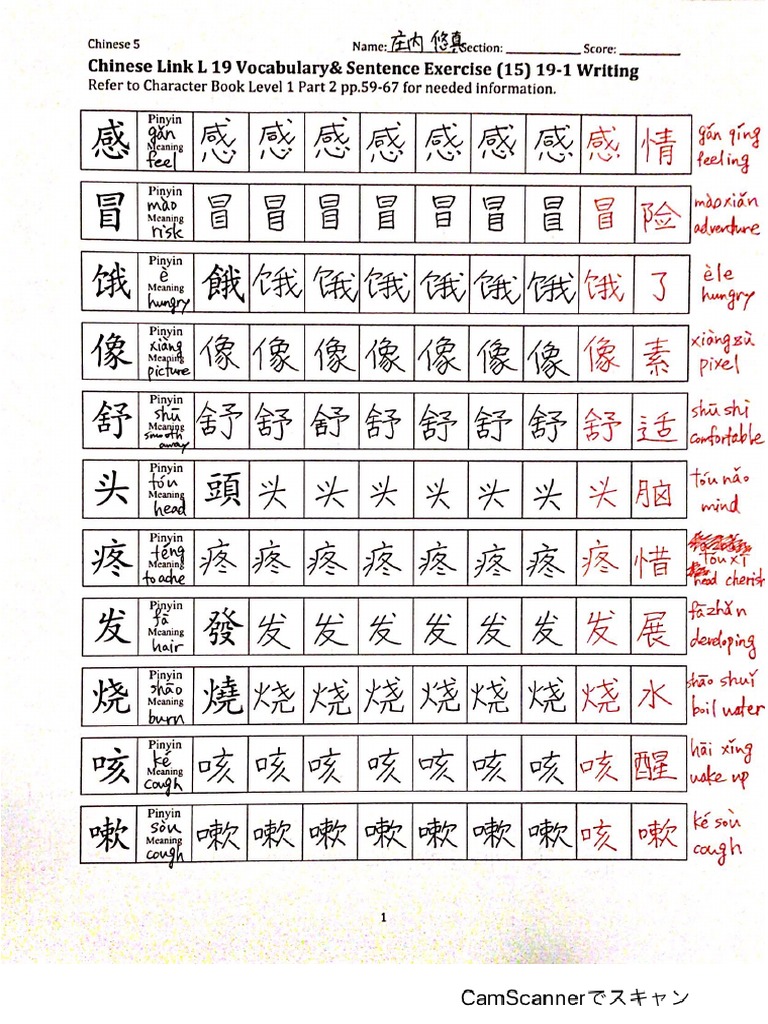 Chinese 5
Name: 庄内 悠真 Section: ____________ Score: __________
Chinese Link L 19 Vocabulary& Sentence Exercise (15) 19-1 Writing
Refer to Character Book Level 1 Part 2 pp.59-67 for needed information.
感 Pinyin gǎn Meaning feel 感 感 感 感 感 感 感 感 情 gǎn qíng feeling
冒 Pinyin mào Meaning risk 冒 冒 冒 冒 冒 冒 冒 冒 险 mào xiǎn adventure
饿 Pinyin è Meaning hungry 餓 饿 饿 饿 饿 饿 饿 饿 了 è le hungry
像 Pinyin xiàng Meaning picture 像 像 像 像 像 像 像 像 素 xiàng sù pixel
舒 Pinyin shū Meaning smooth away 舒 舒 舒 舒 舒 舒 舒 舒 适 shū shì comfortable
头 Pinyin tóu Meaning head 頭 头 头 头 头 头 头 头 脑 tóu nǎo mind
疼 Pinyin téng Meaning to ache 疼 疼 疼 疼 疼 疼 疼 疼 惜 tóu xī head cherish
发 Pinyin fà Meaning hair 發 发 发 发 发 发 发 发 展 fā zhǎn developing
烧 Pinyin shāo Meaning burn 燒 烧 烧 烧 烧 烧 烧 烧 水 shāo shuǐ boil water
咳 Pinyin ké Meaning cough 咳 咳 咳 咳 咳 咳 咳 咳 醒 hāi xǐng wake up
嗽 Pinyin sòu Meaning cough 嗽 嗽 嗽 嗽 嗽 嗽 嗽 咳 嗽 ké sòu cough
1
CamScannerでスキャン